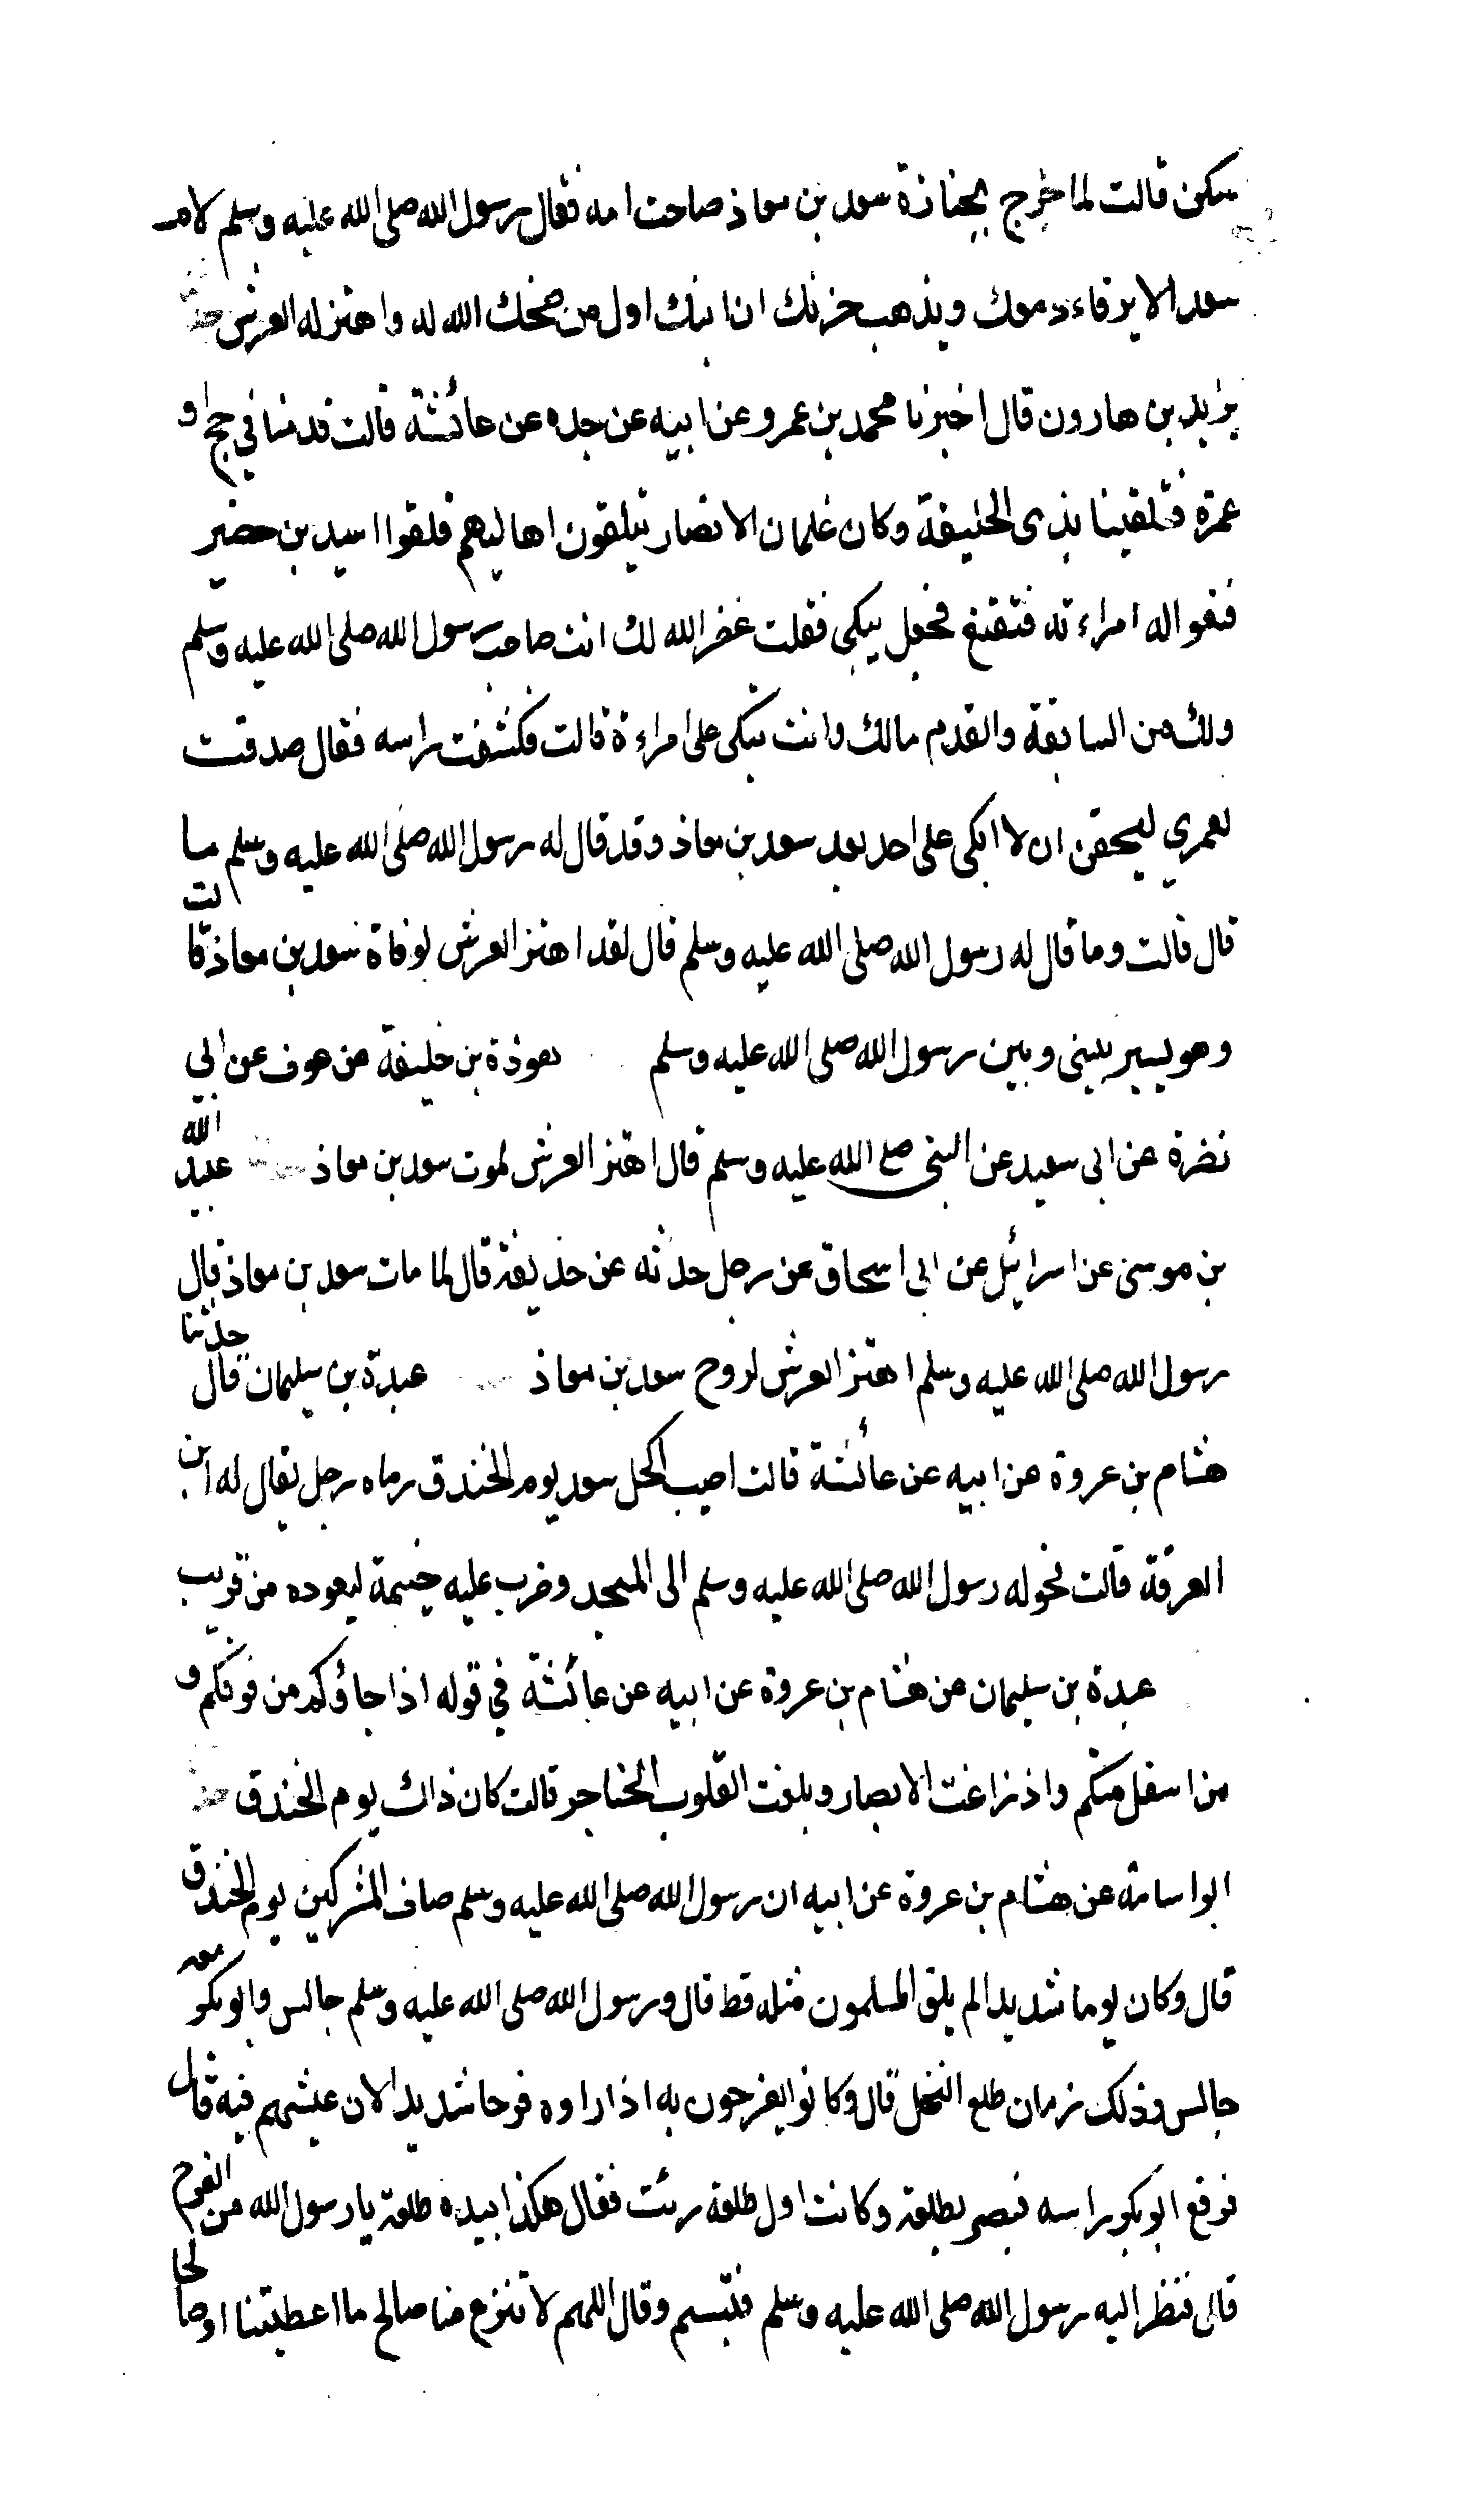 سكن قالت لما خرج بجنازة سعد بن معاذ صاحت امه فقال رسول الله صلى الله عليه وسلم لام
سعد الا يرقاء دمعك ويذهب حزنك ان ابنك اول من ضحك الله له واهتز له العرش
يزيد بن هارون قال اخبرنا محمد بن عمرو عن ابيه عن جده عن عائشة قالت قدمنا في حج او
عمرة فتلقينا بذى الحليفة وكان غلمان الانصار يتلقون اهاليهم فلقوا اسيد بن حضير
فنعوا له امراءته فتقنع فجعل يبكي فقلت غفر الله لك انت صاحب رسول الله صلى الله عليه وسلم
ولك من السابقة والقدم مالك وانت تبكى على امراءة قالت فكشفت راسه فقال صدقت
لعمري ليحقن ان لا ابكى على احد بعد سعد بن معاذ وقد قال له رسول الله صلى الله عليه وسلم ما
قال قالت وما قال له رسول الله صلى الله عليه وسلم قال لقد اهتز العرش لوفاة سعد بن معاذ قالت
وهو يسير بينى وبين رسول الله صلى الله عليه وسلم هوذة بن خليفة عن عوف عن ابي
نضرة عن ابى سعيد عن النبى صلى الله عليه وسلم قال اهتز العرش لموت سعد بن معاذ عبيد الله
بن موسى عن اسرائيل عن ابى اسحاق عن رجل حدثه عن حذيفة قال لما مات سعد بن معاذ قال
رسول الله صلى الله عليه وسلم اهتز العرش لروح سعد بن معاذ عبدة بن سليمان قال حدثنا
هشام بن عروة عن ابيه عن عائشة قالت اصيب اكحل سعد يوم الخندق رماه رجل يقال له ابن
العرقة قالت فحوله رسول الله صلى الله عليه وسلم الى المسجد وضرب عليه خيمة ليعوده من قريب
عبدة بن سليمان عن هشام بن عروة عن ابيه عن عائشة في قوله اذا جاؤكم من فوقكم و
من اسفل منكم واذ زاغت الابصار وبلغت القلوب الحناجر قالت كان ذاك يوم الخندق
ابو اسامة عن هشام بن عروة عن ابيه ان رسول الله صلى الله عليه وسلم صاف المشركين يوم الخندق
قال وكان يوما شديدا لم يلق المسلمون مثله قط قال ورسول الله صلى الله عليه وسلم جالس وابو بكر معه
جالس وذلك زمان طلع النخل قال وكانوا يفرحون به اذا راوه فرحا شديدا لان عيشهم فيه قال
فرفع ابو بكر راسه فبصر بطلعة وكانت اول طلعة رئت فقال هكذا بيده طلعة يا رسول الله من الفرح
قال فنظر اليه رسول الله صلى الله عليه وسلم فتبسم وقال اللهم لا تنزع منا صالح ما اعطيتنا او صالحا